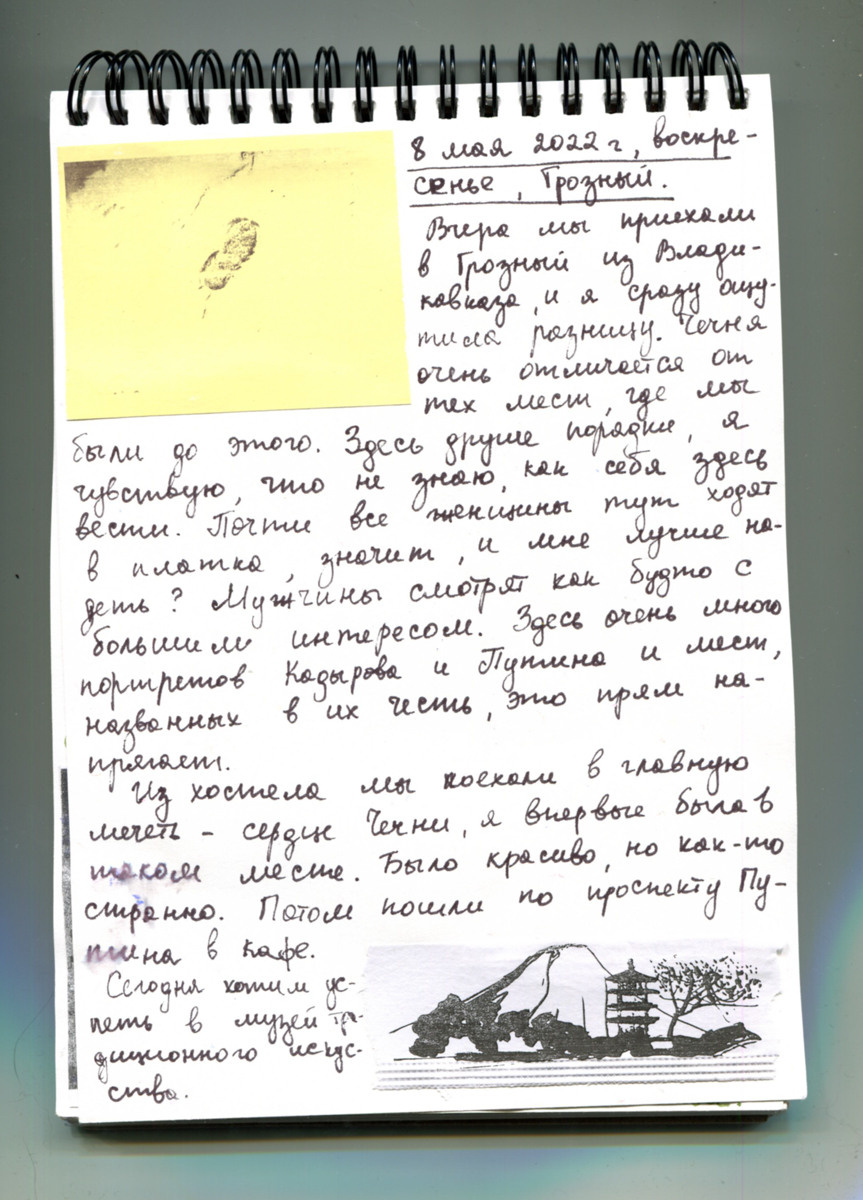 8 мая 2022 г, воскре-
сенье, Грозный.
Вчера мы приехали
в Грозный из Влади-
кавказа, и я сразу ощу-
тила разницу. Чечня
очень отличается от
тех мест, где мы
были до этого. Здесь другие порядки, я
чувствую, что не знаю, как себя здесь
вести. Почти все женщины тут ходят
в платка, значит, и мне лучше на-
деть? Мужчины смотрят как будто с
большим интересом. Здесь очень много
портретов Кадырова и Путина и мест,
названных в их честь, это прям на-
прягает.
Из хостела мы поехали в главную
мечеть - сердце Чечни, я впервые была в
таком месте. Было красиво, но как-то
странно. Потом пошли по проспекту Пу-
тина в кафе.
Сегодня хотим ус-
петь в музей тра-
диционного искус-
ства.